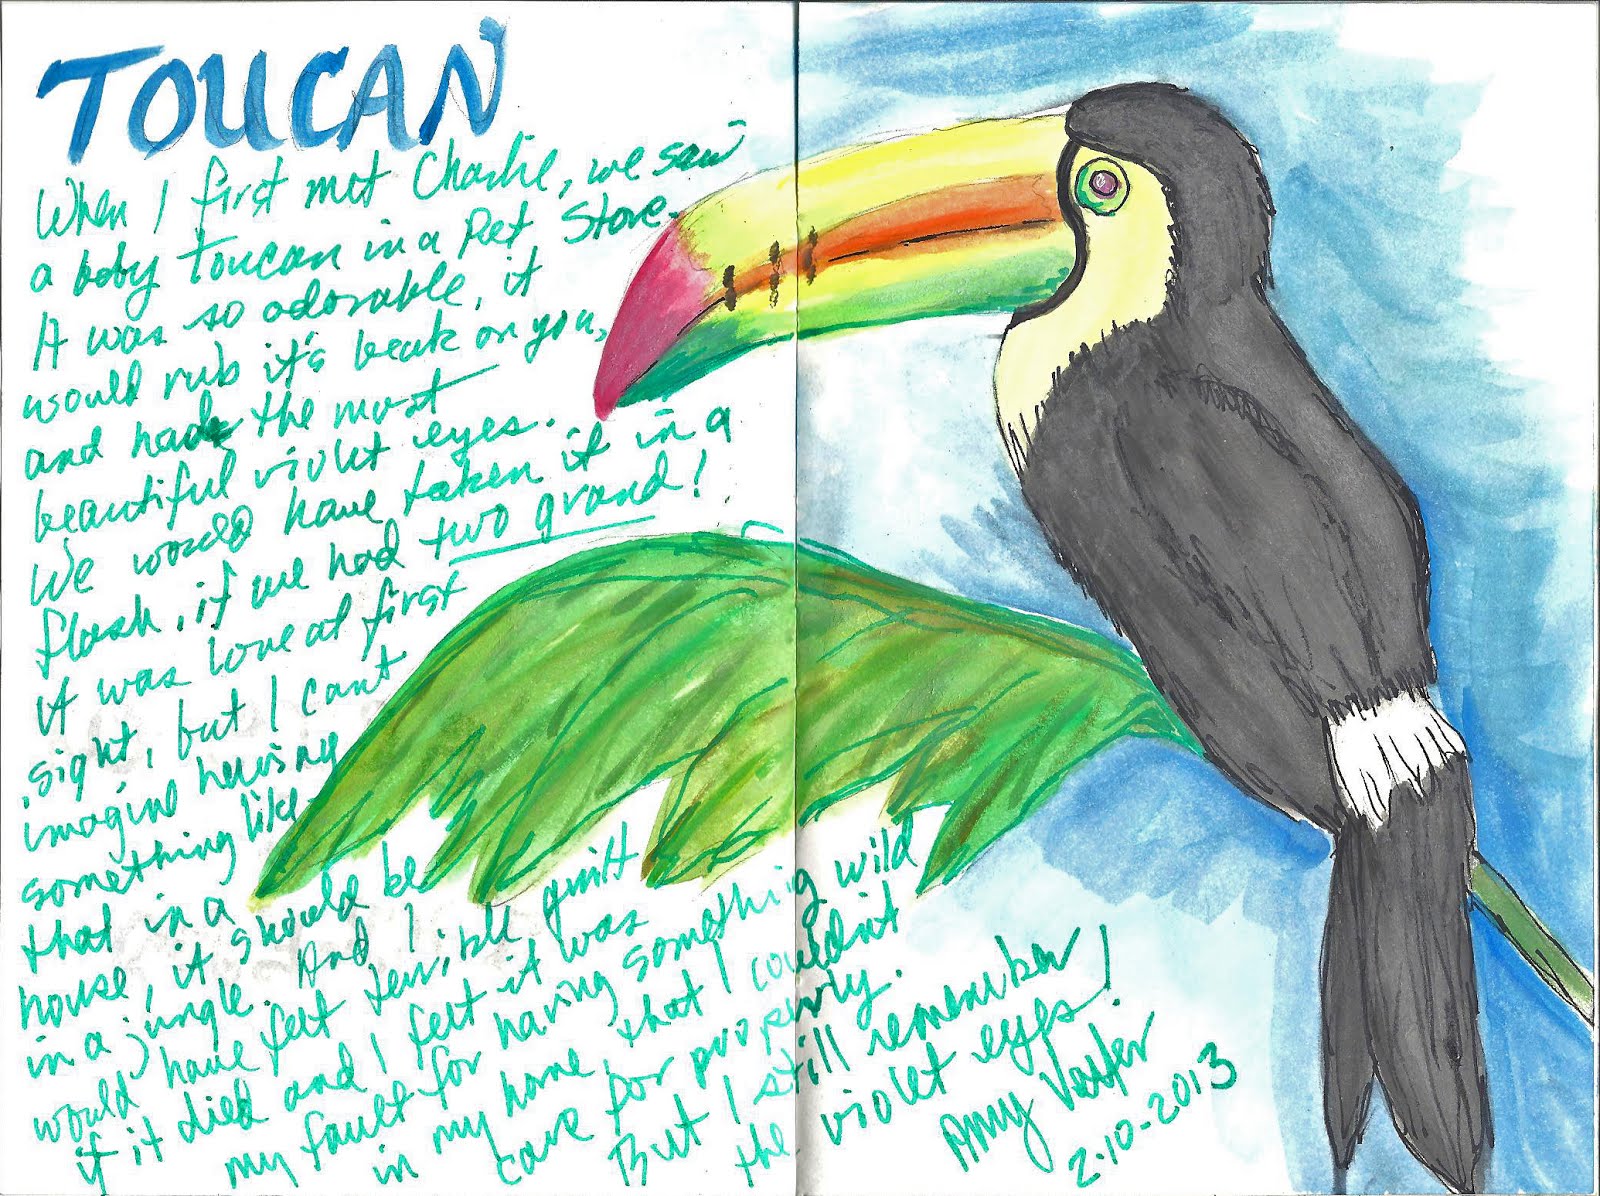 TOUCAN
When I first met Charlie, we saw
a baby toucan in a Pet Store.
It was so adorable, it
would rub it's beak on you,
and had the most
beautiful violet eyes.
We would have taken it in a
flash, if we had two grand!
it was love at first
sight, but I cant
imagine having
something like
that in a
house, it should be
in a jungle. And I
would have felt terrible guilt
if it died and I felt it was
my fault for having something wild
in my home, that I couldn't
care for properly.
But I still remember
the violet eyes!
Amy
2-10-2013